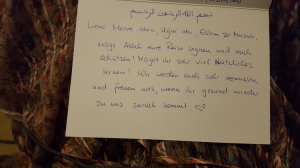 بسم الله الرحمن الرحيم
Liebe Merve abla, Uğur abi, Eslem & Meryem,
möge Allah eure Reise segnen und euch
schützen! Möget ihr sehr viel Nützliches
lernen! Wir werden euch sehr vermissen
und freuen uns, wenn ihr gesund wieder
zu uns zurück kommt ♡